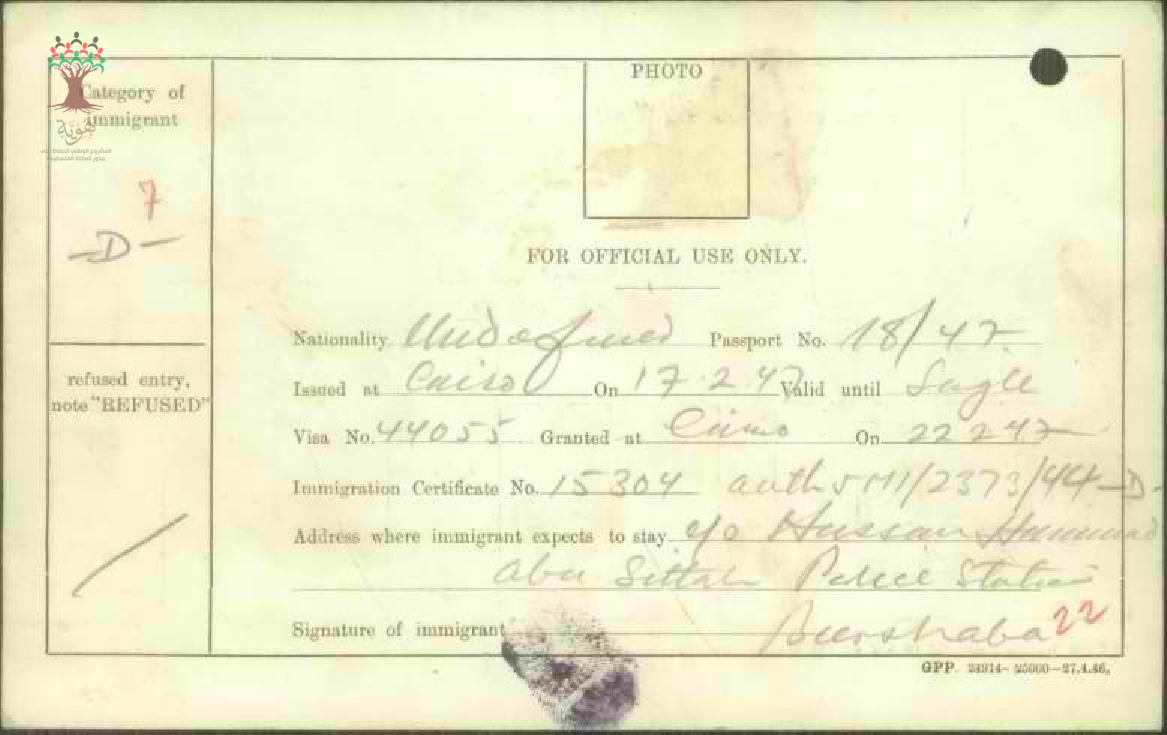 هوية
Category of
immigrant
7
-D-
refused entry,
note "REFUSED"
PHOTO
FOR OFFICIAL USE ONLY.
Nationality Undefined Passport No. 18/47
Issued at Cairo On 17.2.47 Valid until Single
Visa No. 44055 Granted at Cairo On 22 2 47
Immigration Certificate No. 15304 auth MI/2373/44-D-
Address where immigrant expects to stay c/o Hassan Hammad
Abu Sittah Police Station
Signature of immigrant Beersheba 22
GPP. 24914- 25000-27.4.46.